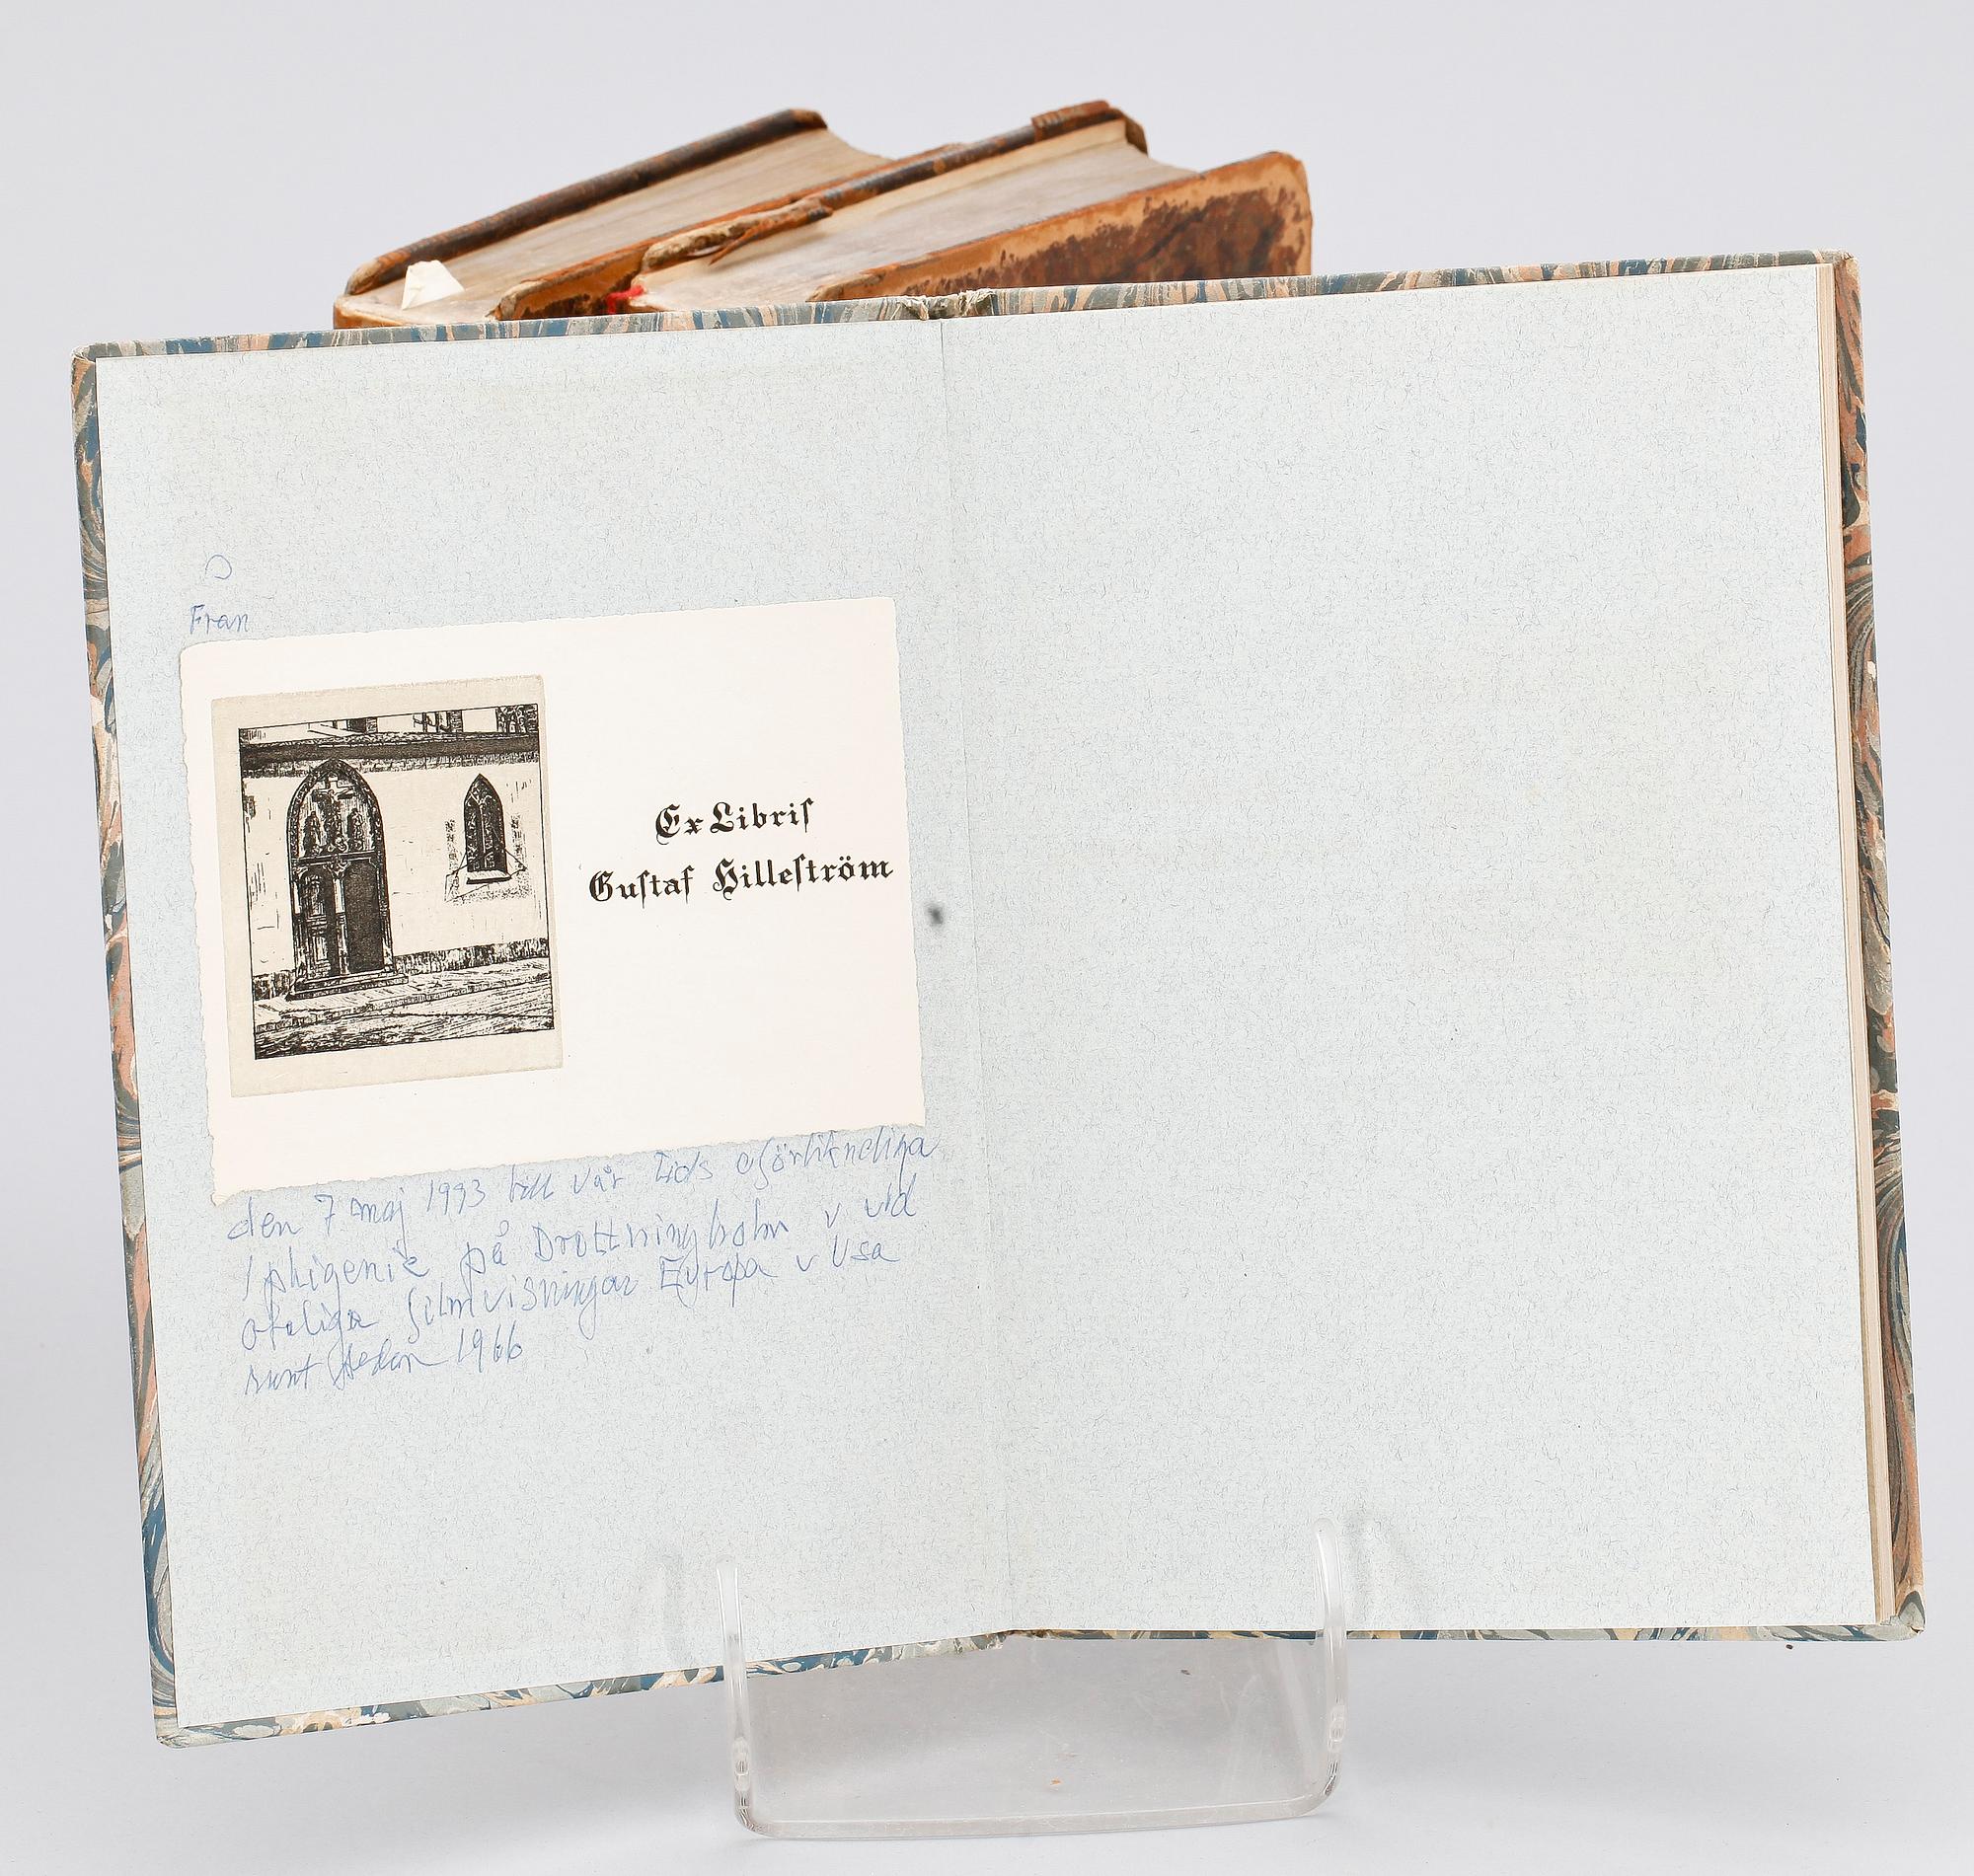 Från
Ex Libriſ
Guſtaf Hilleſtröm
den 7 maj 1993 till vår tids oförlikneliga
Iphigenie på Drottningholm v vid
otaliga filmvisningar Europa v Usa
runt sedan 1966